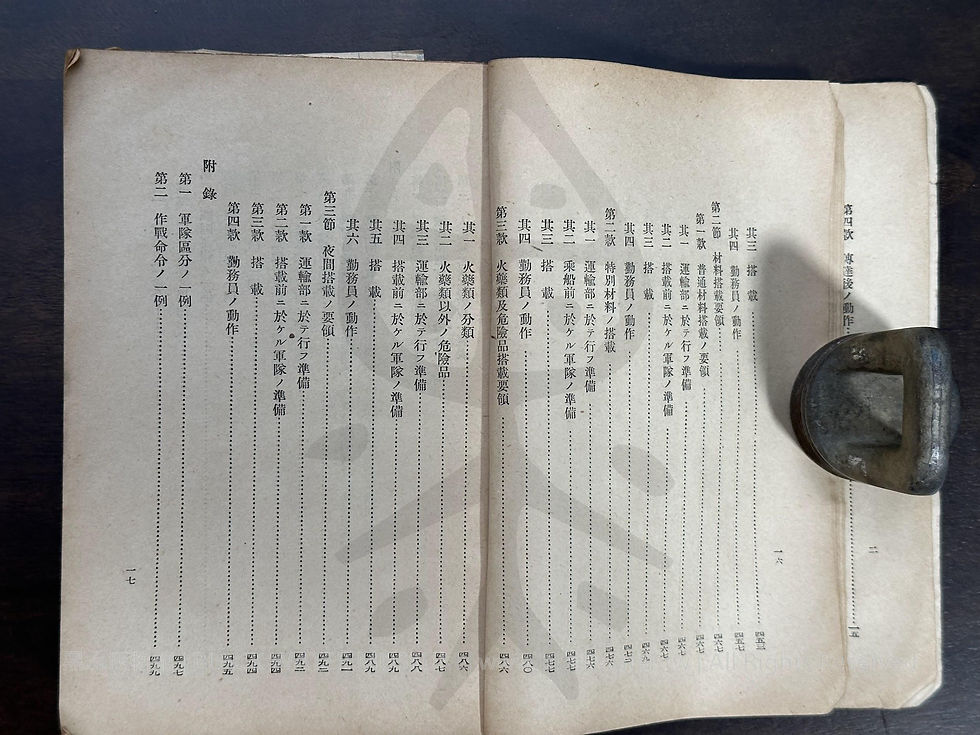 第四款 傳達後ノ動作……一五
二
其三 搭載……四五三
其四 勤務員ノ動作……四五七
第二節 材料搭載要領……四六七
第一款 普通材料搭載ノ要領……四六七
其一 運輸部ニ於テ行フ準備……四六七
其二 搭載前ニ於ケル軍隊ノ準備……四六七
其三 搭載……四六九
其四 勤務員ノ動作……四七二
第二款 特別材料ノ搭載……四七六
其一 運輸部ニ於テ行フ準備……四七六
其二 乘船前ニ於ケル軍隊ノ準備……四七七
其三 搭載……四七七
其四 勤務員ノ動作……四八〇
第三款 火藥類及危險品搭載要領……四八六
一六
其一 火藥類ノ分類……四八六
其二 火藥類以外ノ危險品……四八七
其三 運輸部ニ於テ行フ準備……四八八
其四 搭載前ニ於ケル軍隊ノ準備……四八九
其五 搭載……四八九
其六 勤務員ノ動作……四九一
第三節 夜間搭載ノ要領……四九二
第一款 運輸部ニ於テ行フ準備……四九二
第二款 搭載前ニ於ケル軍隊ノ準備……四九四
第三款 搭載……四九四
第四款 勤務員ノ動作……四九五
附錄
第一 軍隊區分ノ一例……四九七
第二 作戰命令ノ一例……四九九
一七